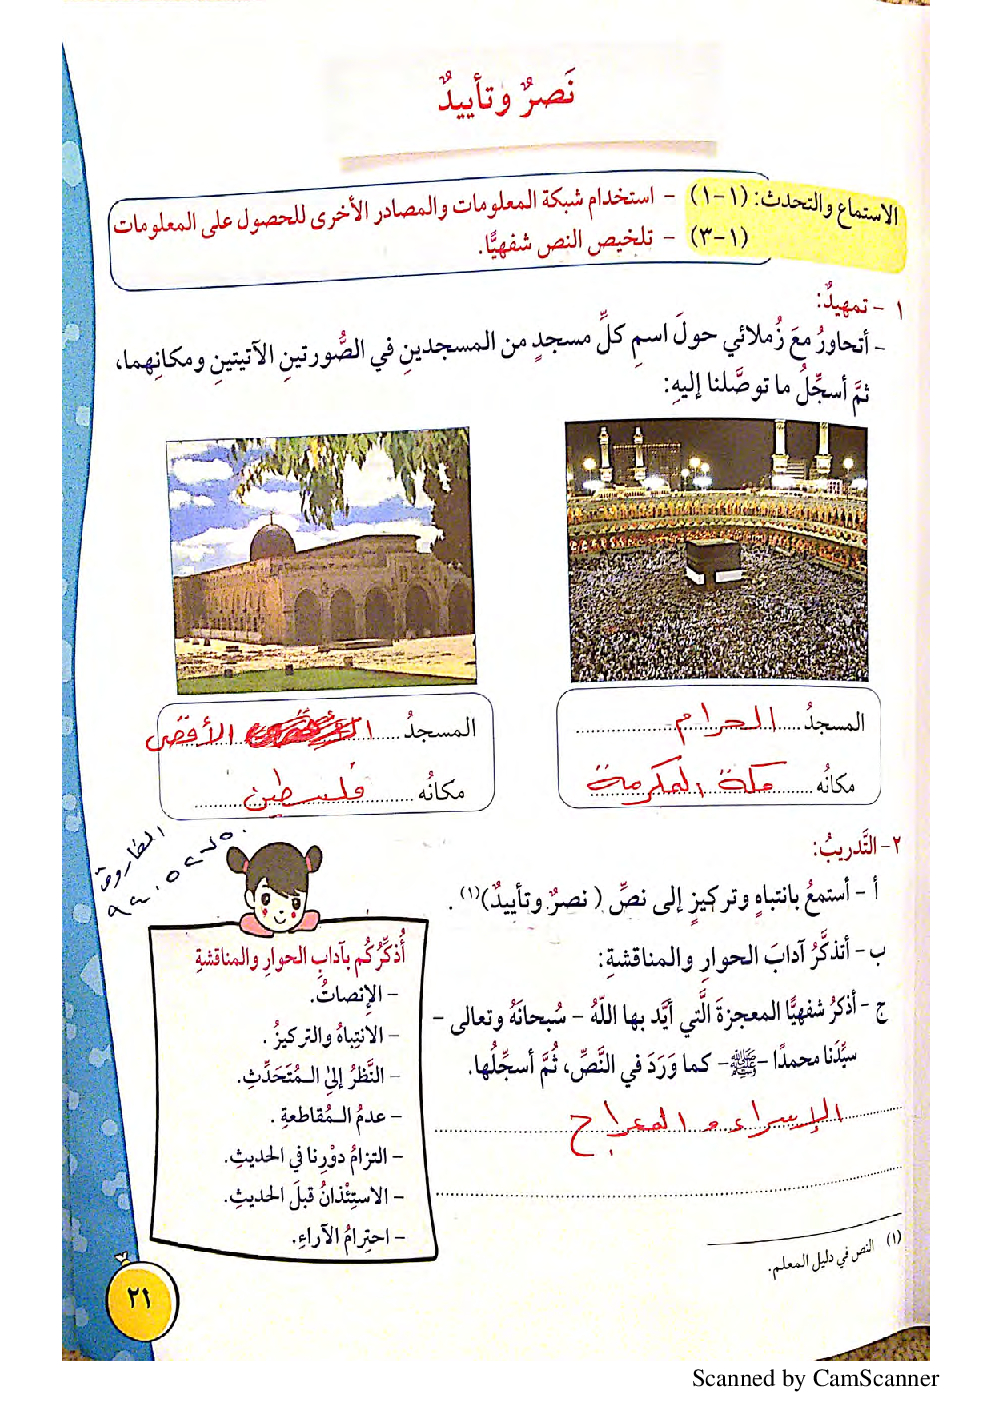 نَصرٌ وتأييدٌ
الاستماع والتحدث: (١-١) - استخدام شبكة المعلومات والمصادر الأخرى للحصول على المعلومات
(١-٣) - تلخيص النص شفهيًّا.
١ - تمهيدٌ:
- أتحاورُ معَ زُملائي حولَ اسمِ كلِّ مسجدٍ من المسجدينِ في الصُّورتينِ الآتيتينِ ومكانِهما،
ثمَّ أسجِّلُ ما توصَّلنا إليهِ:
المسجدُ الحرام
مكانُه مكة المكرمة
المسجدُ الأقصى
مكانُه فلسطين
٢- التَّدريبُ:
أ - أستمعُ بانتباهٍ وتركيزٍ إلى نصِّ ( نصرٌ وتأييدٌ)(١).
ب- أتذكَّرُ آدابَ الحوارِ والمناقشةِ:
ج- أذكرُ شفهيًّا المعجزةَ الَّتي أيَّد بها اللّهُ - سُبحانَهُ وتعالى -
سيِّدَنا محمدًا -ﷺ- كما وَرَدَ في النَّصِّ، ثُمَّ أسجِّلُها.
الإسراء و المعراج
أُذكِّرُكُم بآدابِ الحوارِ والمناقشةِ
- الإنصاتُ.
- الانتِباهُ والتركيزُ.
- النَّظرُ إلى المُتَحَدِّثِ.
- عدمُ المُقاطعةِ.
- التزامُ دوْرِنا في الحديثِ.
- الاستِئْذانُ قبلَ الحديثِ.
- احتِرامُ الآراءِ.
(١) النص في دليل المعلم.
٢١
Scanned by CamScanner